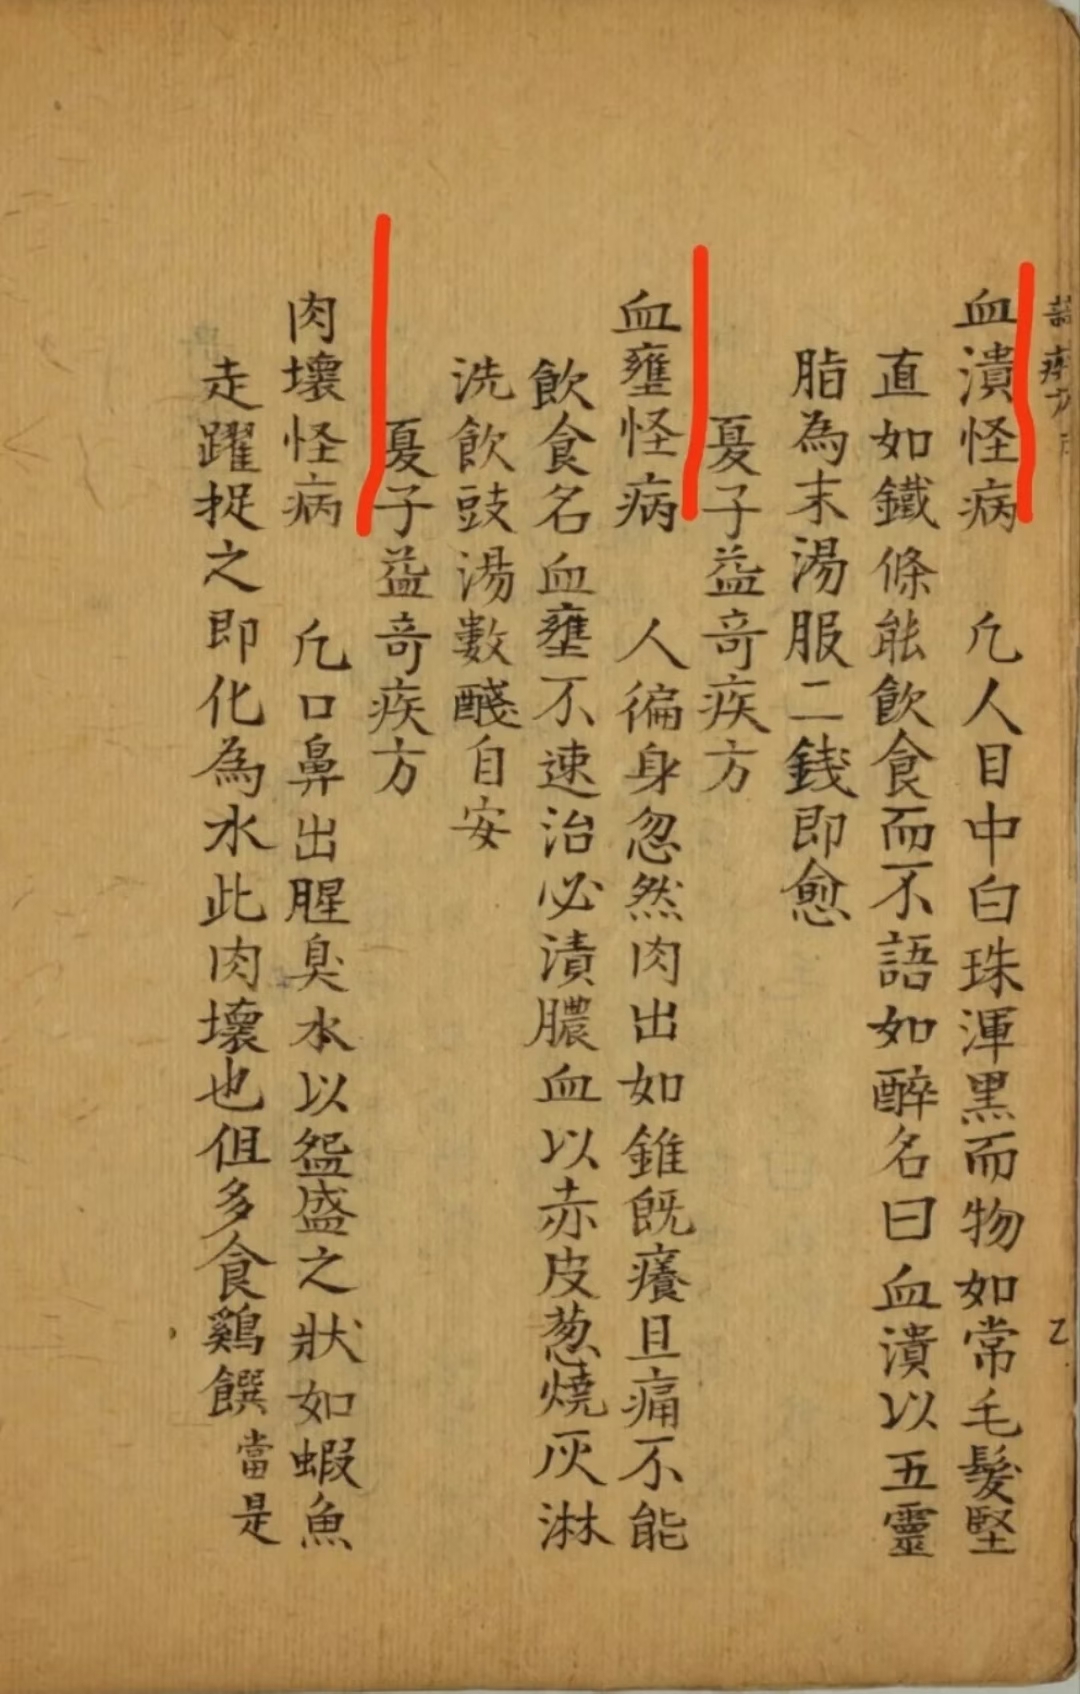 血潰怪病　凢人目中白珠渾黒而物如常毛髮堅
直如鐵條能飲食而不語如醉名曰血潰以五靈
脂為末湯服二銭即愈
夏子益竒疾方
血壅怪病　人徧身忽然肉出如錐既癢且痛不能
飲食名血壅不速治必漬膿血以赤皮葱燒灰淋
洗飲豉湯數醆自安
夏子益竒疾方
肉壞怪病　凢口鼻出腥臭水以盌盛之狀如蝦魚
走躍捉之即化為水此肉壞也但多食鷄饌當是
乙